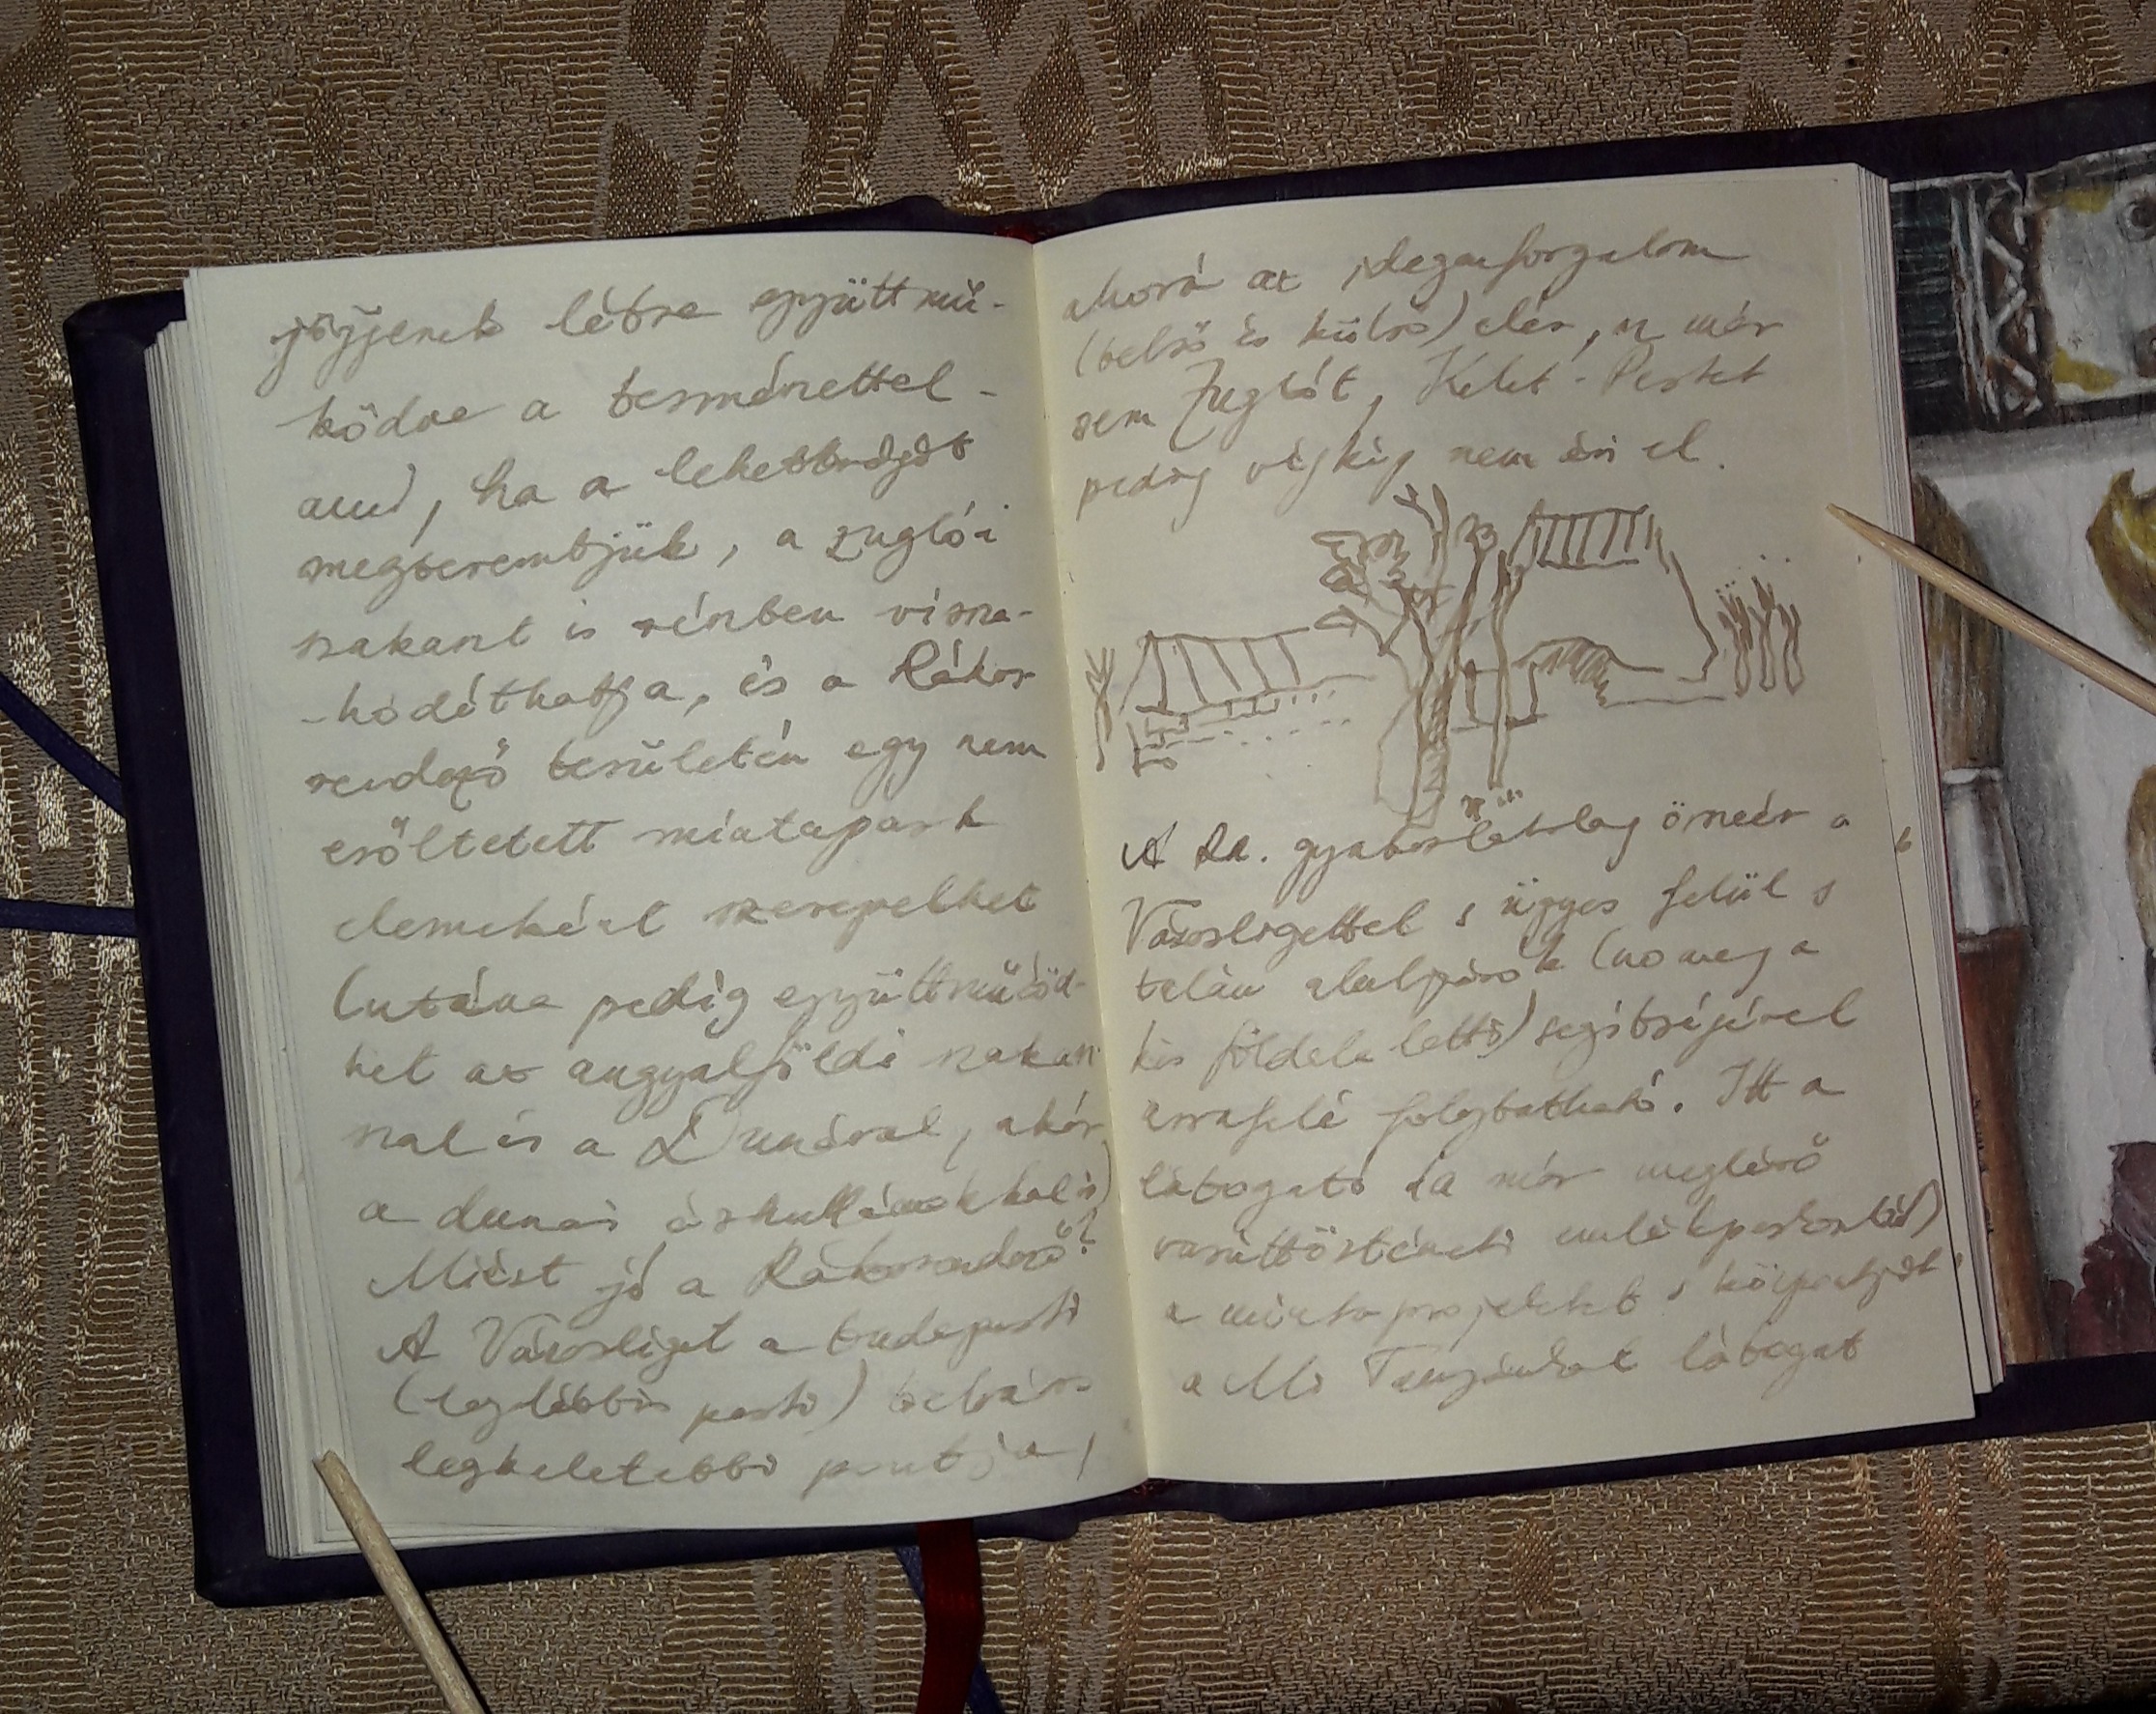 jöjjenek létre együttmű-
ködve a természettel -
ami, ha a lehetőségét
megteremtjük, a zuglói
szakaszt is részben vissza-
-hódíthatja, és a Rákos
rendező területén egy nem
erőltetett mintapark
elemeként szerepelhet
(utána pedig együttműköd-
het az angyalföldi szakasz
szal és a Dunával, akár
a dunai
Miért jó a Rákosrendező?
A Városliget a budapesti
(legalábbis pesti) belváros
legkeletebbi pontja,
ahová az idegenforgalom
(belső és külső) elér, ez már
sem Zuglót, Kelet-Pestet
pedig végképp nem éri el.
A gyakorlatilag összeér a
Városligettel s ügyes felül s
talán aluljárók (no meg a
kis földalatti) segítségével
arrafelé folytatható. Itt a
látogató (a már meglévő
vasúttörténeti emlékparkostól)
a minta projektet s központját,
a Mi látogat